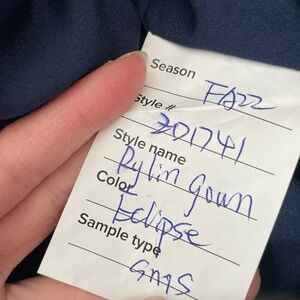 Season FA22
Style # 301741
Style name Rylin gown
Color Eclipse
Sample type GMS